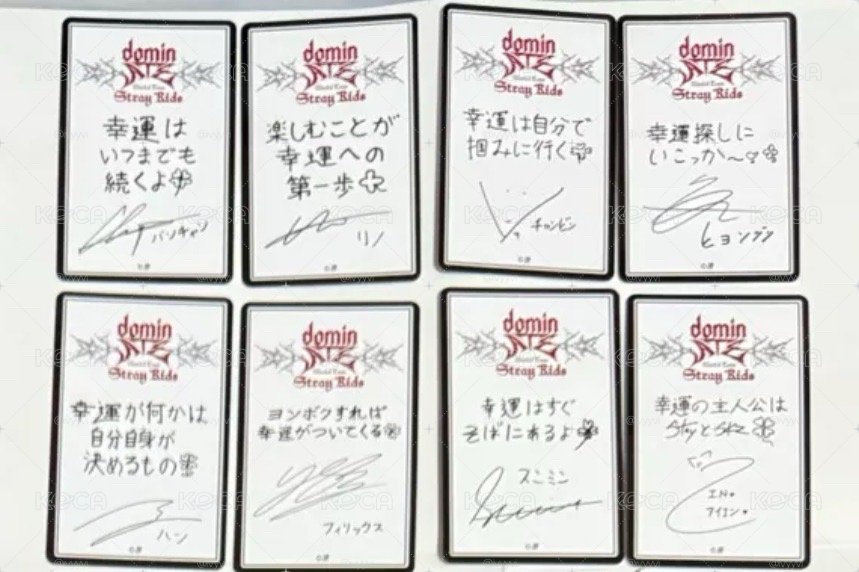 domin
ATE
World Tour
Stray Kids
幸運は
いつまでも
続くよ
バンチャン
domin
ATE
World Tour
Stray Kids
楽しむことが
幸運への
第一歩
リノ
domin
ATE
World Tour
Stray Kids
幸運は自分で
掴みに行く
チャンビン
domin
ATE
World Tour
Stray Kids
幸運探しに
いこっか〜
ヒョンジン
domin
ATE
World Tour
Stray Kids
幸運が何かは
自分自身が
決めるもの
ハン
domin
ATE
World Tour
Stray Kids
ヨンボクすれば
幸運がついてくる
フィリックス
domin
ATE
World Tour
Stray Kids
幸運はすぐ
そばにあるよ
スンミン
domin
ATE
World Tour
Stray Kids
幸運の主人公は
Stayとskz
I.N.
アイエン
KOCA